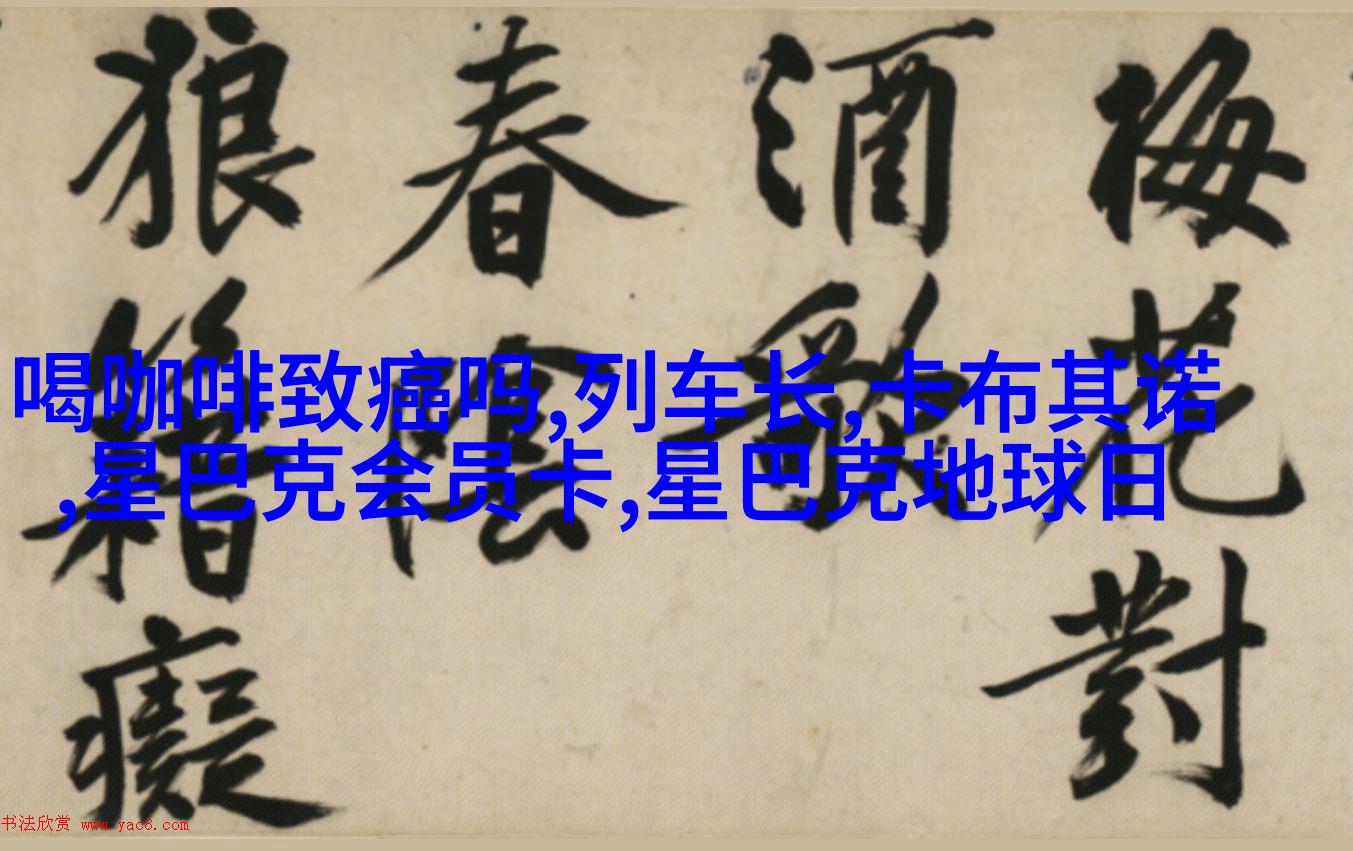 梅花對
酒
春陰
狼籍癡
喝咖啡致癌吗,列车长,卡布其诺
,星巴克会员卡,星巴克地球日
书法欣赏 www.yac8.com